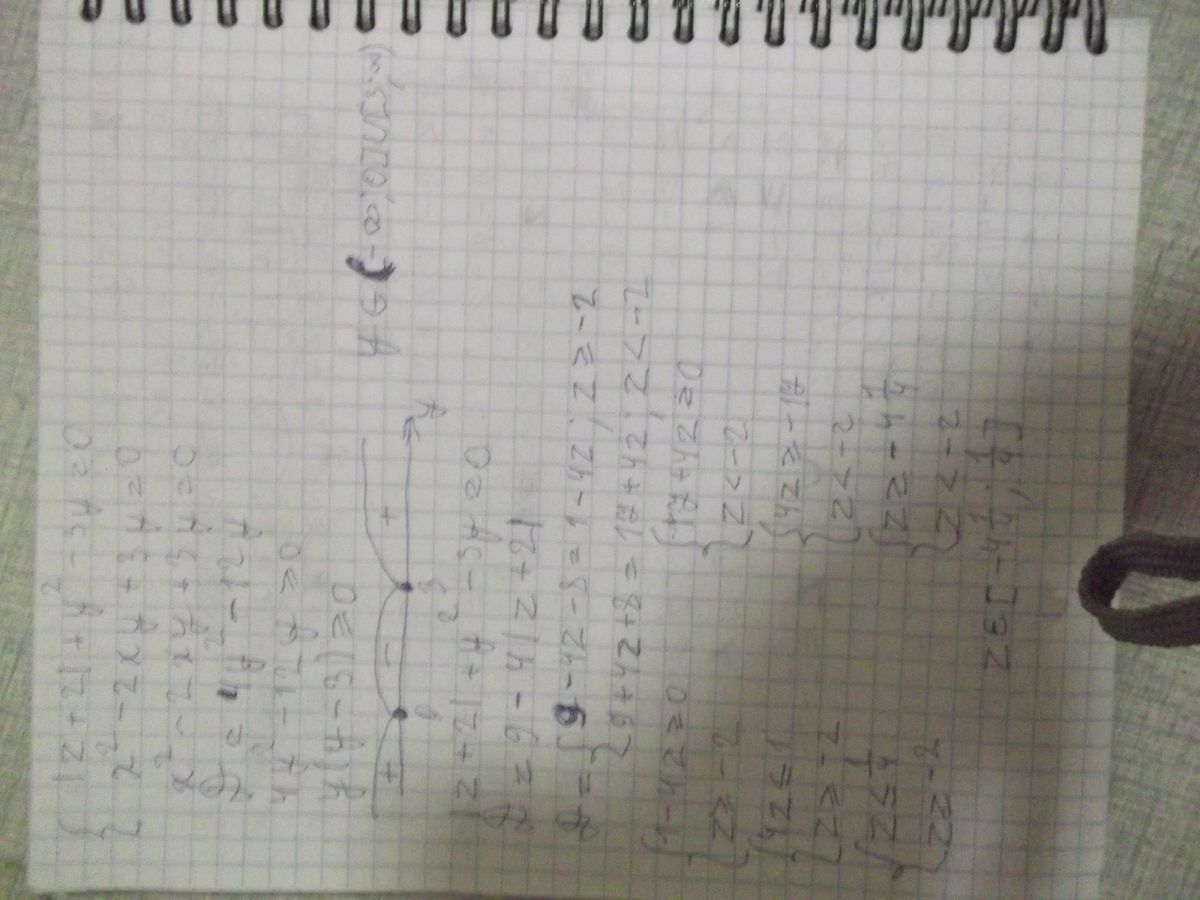 { |z+2|+y²-3y=0
{ x²-2xy+3y=0
x²-2xy+3y=0
D=4y²-12y
4y²-12y≥0
y(y-3)≥0
+ - +
0 3 y
y∈(-∞;0]∪[3;∞)
|z+2|+y²-3y=0
D=9-4|z+2|
D={9-4z-8=1-4z; z≥-2
{9+4z+8=17+4z; z<-2
{1-4z≥0 {17+4z≥0
{z≥-2 {z<-2
{4z≤1 {4z≥-17
{z≥-2 {z<-2
{z≤1/4 {z≥-4 1/4
{z≥-2 {z<-2
z∈[-4 1/4; 1/4]